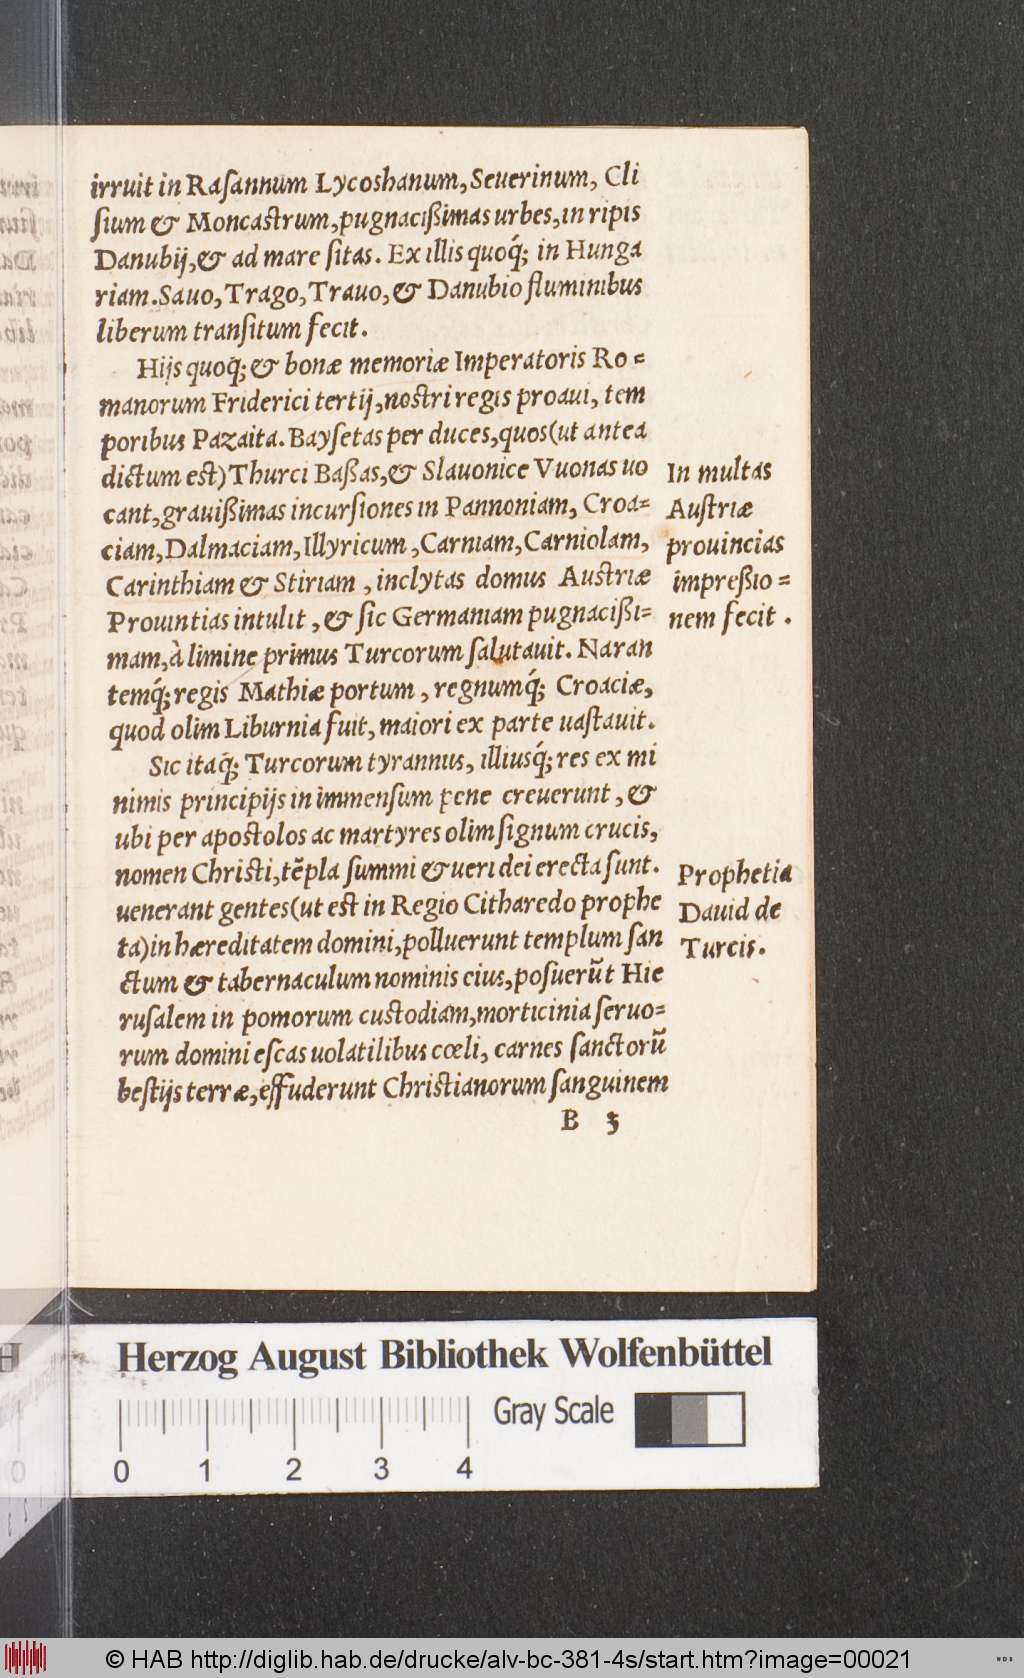 irruit in Raſannum Lycoshanum, Seuerinum, Cli
ſium & Moncaſtrum, pugnacißimas urbes, in ripis
Danubij, & ad mare ſitas. Ex illis quoq́; in Hunga
riam. Sauo, Trago, Trauo, & Danubio fluminibus
liberum tranſitum fecit.
Hijs quoq́; & bonæ memoriæ Imperatoris Ro=
manorum Friderici tertij, noſtri regis proaui, tem
poribus Pazaita. Bayſetas per duces, quos (ut antea
dictum eſt) Thurci Baßas, & Slauonice Vuonas uo
cant, grauißimas incurſiones in Pannoniam, Croa=
ciam, Dalmaciam, Illyricum, Carniam, Carniolam,
Carinthiam & Stiriam, inclytas domus Auſtriæ
Prouintias intulit, & ſic Germaniam pugnacißi=
mam, à limine primus Turcorum ſalutauit. Naran
temq́; regis Mathiæ portum, regnumq́; Croaciæ,
quod olim Liburnia fuit, maiori ex parte uaſtauit.
In multas
Auſtriæ
prouincias
impreßio=
nem fecit.
Sic itaq́; Turcorum tyrannus, illiusq́; res ex mi
nimis principijs in immenſum pene creuerunt, &
ubi per apoſtolos ac martyres olim ſignum crucis,
nomen Chriſti, tẽpla ſummi & ueri dei erecta ſunt.
uenerant gentes (ut eſt in Regio Citharedo prophe
ta) in hæreditatem domini, polluerunt templum ſan
ctum & tabernaculum nominis eius, poſuerũt Hie
ruſalem in pomorum cuſtodiam, morticinia ſeruo=
rum domini eſcas uolatilibus cœli, carnes ſanctorũ
beſtijs terræ, effuderunt Chriſtianorum ſanguinem
Prophetia
Dauid de
Turcis.
B 3
Herzog August Bibliothek Wolfenbüttel
Gray Scale
0 1 2 3 4
© HAB http://diglib.hab.de/drucke/alv-bc-381-4s/start.htm?image=00021